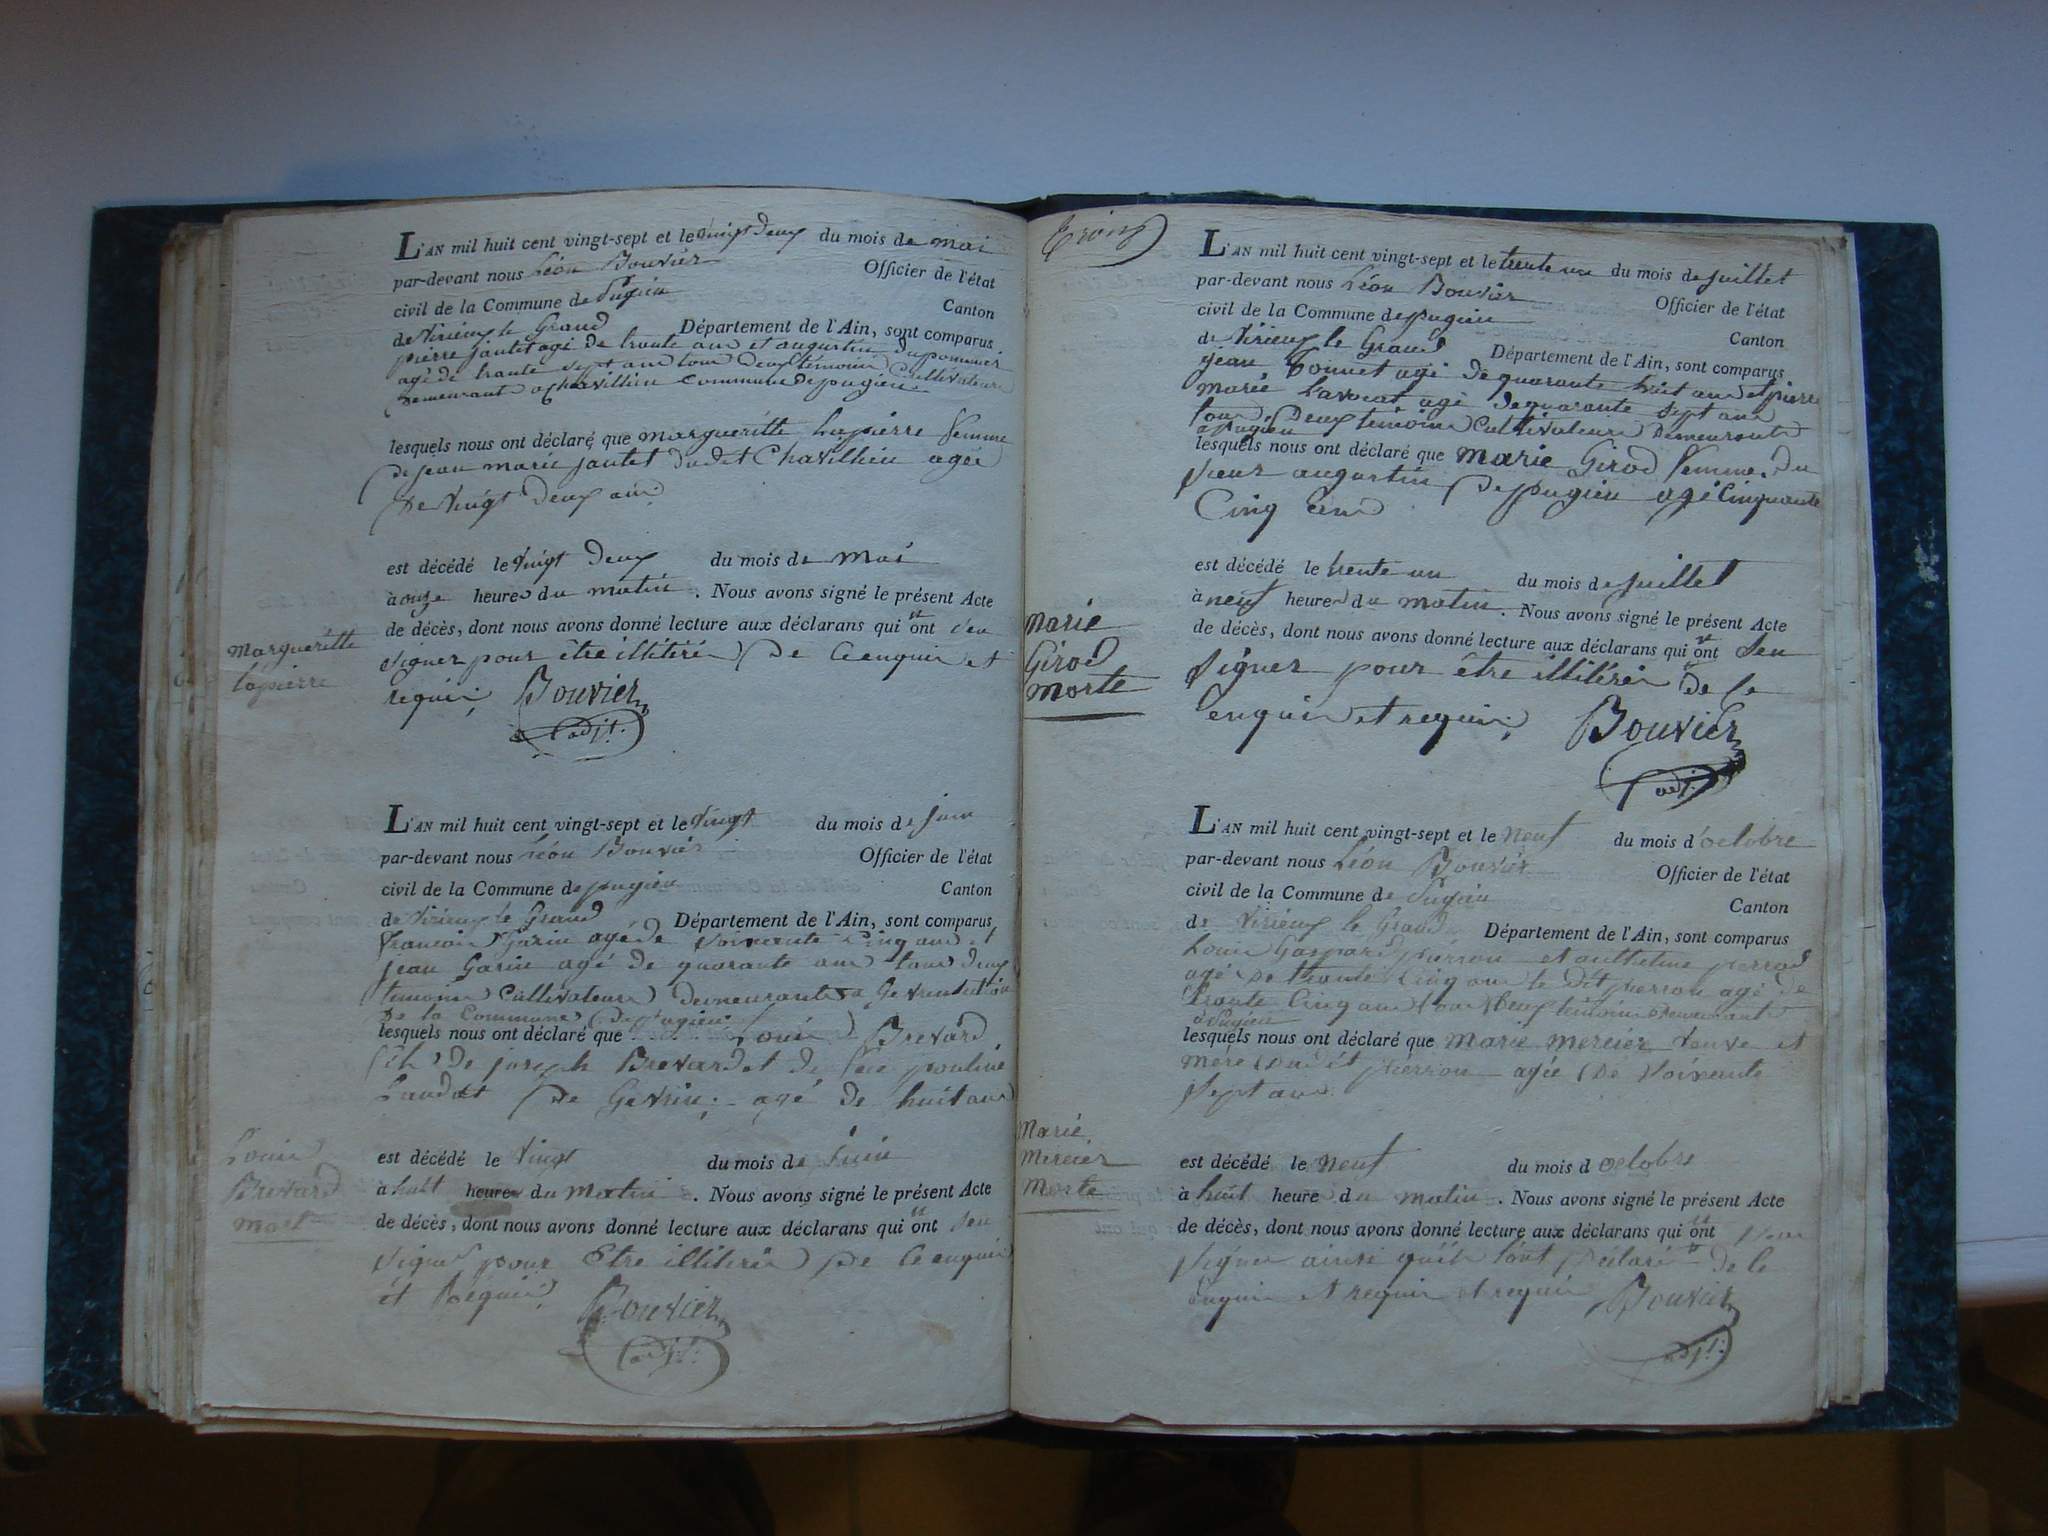 L'AN mil huit cent vingt-sept et le vingt deux du mois de mai
par-devant nous Léon Bouvier Officier de l'état
civil de la Commune de Pugieu Canton
de Virieux le Grand Département de l'Ain, sont comparus
pierre jantet agé de trante ans et augustin dupommier
agé de trante sept ans tous deux témoins Cultivateurs
demeurants a Chavillieu Commune de pugieu
lesquels nous ont déclaré que margueritte Lapierre femme
de jean marie jantet dudit Chavillieu agée
de vingt deux ans
est décédé le vingt deux du mois de mai
à onze heures du matin. Nous avons signé le présent Acte
de décès, dont nous avons donné lecture aux déclarans qui ont seu
signer pour être illitéré De Ce enquis et
requis. Bouvier
adjt.
margueritte
lapierre
L'AN mil huit cent vingt-sept et le vingt du mois de juin
par-devant nous Léon Bouvier Officier de l'état
civil de la Commune de pugieu Canton
de Virieux le Grand Département de l'Ain, sont comparus
francois Garin agé de soixante Cinq ans et
jean Garin agé de quarante ans tous deux
temoins Cultivateurs demeurants a Gevrin
de la Commune de pugieu
lesquels nous ont déclaré que Louis Brevard
fils de joseph Brevard et de feue pauline
Laudet de Gevrin agé de huit ans
est décédé le vingt du mois de juin
à huit heures du matin. Nous avons signé le présent Acte
de décès, dont nous avons donné lecture aux déclarans qui ont seu
signer pour Etre illiteré De Ce enquis
et Requis. Bouvier
adjt.
Louis
Brevard
mort
L'AN mil huit cent vingt-sept et le trente un du mois de juillet
par-devant nous Léon Bouvier Officier de l'état
civil de la Commune de pugieu Canton
de Virieux le Grand Département de l'Ain, sont comparus
jean Bonnet agé de quarante huit ans et pierre
marie Lavocat agé de quarante sept ans
tous deux temoins Cultivateurs demeurants
a pugieu
lesquels nous ont déclaré que marie Girod femme du
sieur augustin de pugieu agé Cinquante
Cinq ans
est décédé le trente un du mois de juillet
à neuf heures du matin. Nous avons signé le présent Acte
de décès, dont nous avons donné lecture aux déclarans qui ont seu
signer pour être illitéré de Ce
enquis et requis. Bouvier
adjt.
marie
Girod
morte
L'AN mil huit cent vingt-sept et le neuf du mois d'octobre
par-devant nous Léon Bouvier Officier de l'état
civil de la Commune de Pugieu Canton
de Virieux le Grand Département de l'Ain, sont comparus
Louis Gaspard pierron et anthelme perrod
agé de trante Cinq ans le dit pierron agé de
trante Cinq ans tous deux témoins demeurants
a Pugieu
lesquels nous ont déclaré que marie mercier veuve et
mère dudit pierron agée de soixante
sept ans
est décédé le neuf du mois d'octobre
à huit heure du matin. Nous avons signé le présent Acte
de décès, dont nous avons donné lecture aux déclarans qui ont seu
signer ainsi qu'il l'ont déclaré de Ce
enquis et requis et requis Bouvier
adjt.
marie
mercier
morte